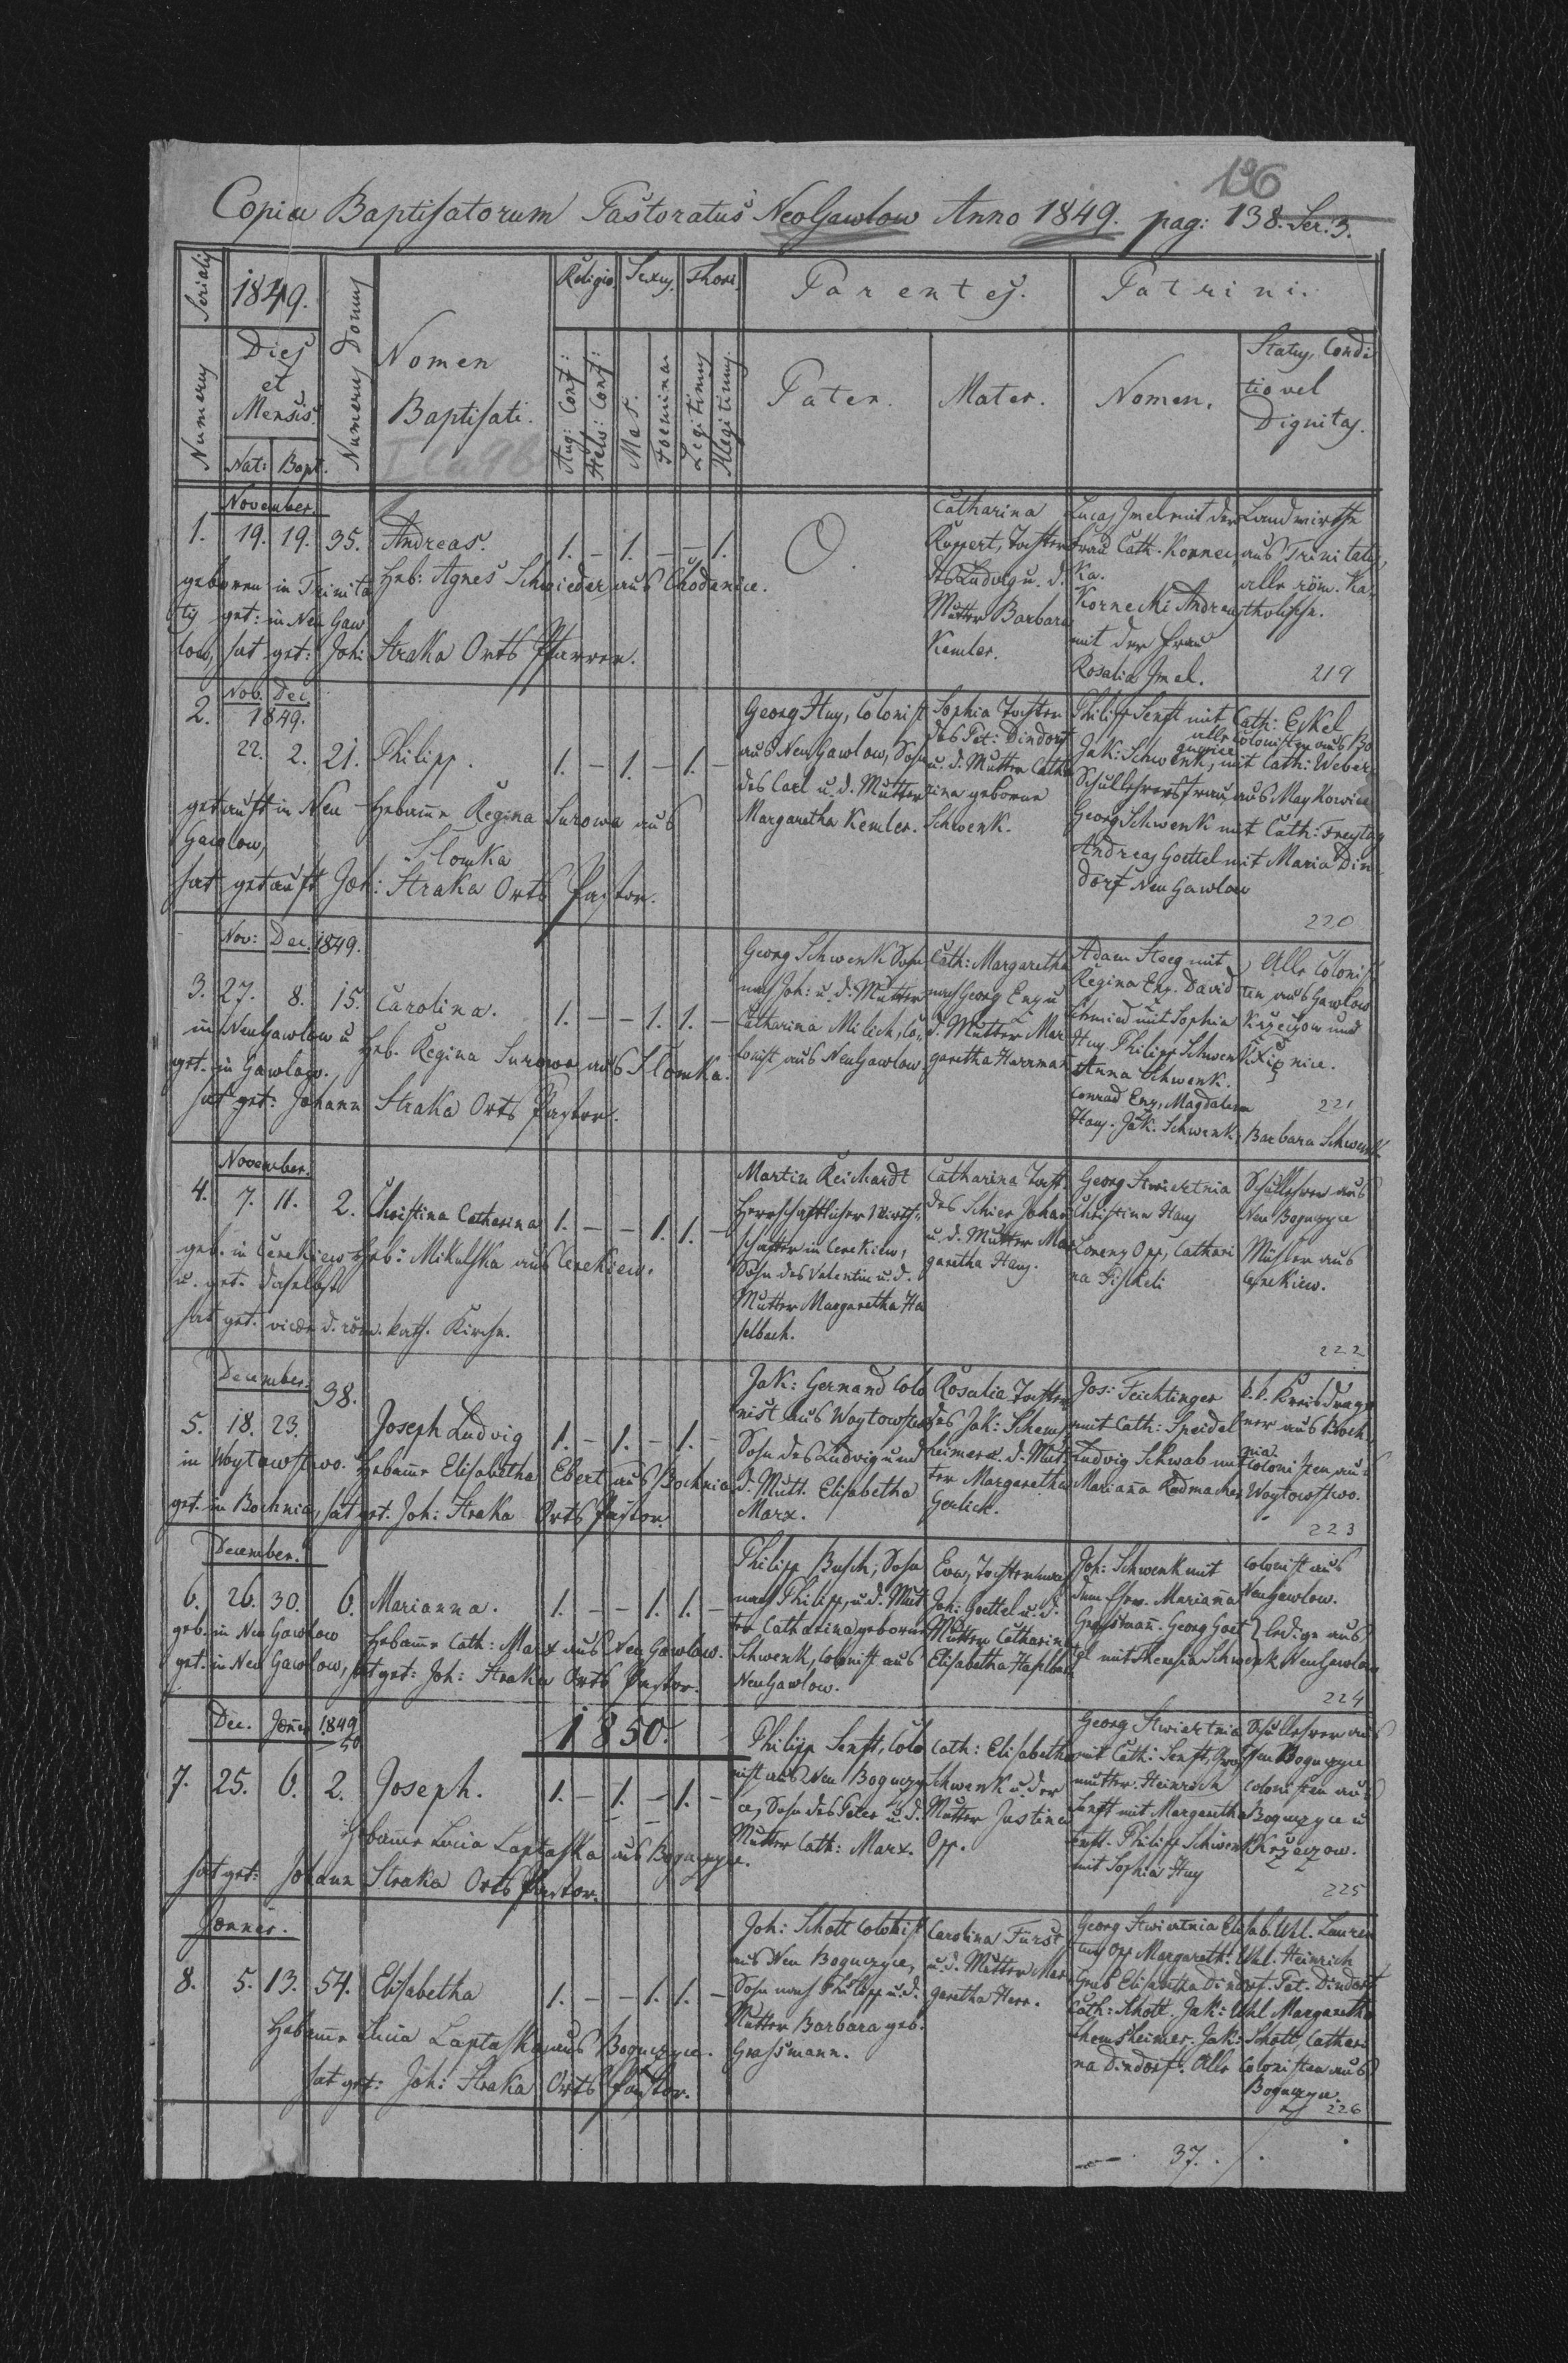 196
Copia Baptisatorum Pastoratus NeoGawlow Anno 1849. pag: 138. Ser. 3.
Numerus Serialis
1849.
Dies
et
Mensis.
Nat: Bapt.
Numerus Domus
Nomen
Baptisati.
Religio
Aug: Conf:
Helv: Conf:
Sexus.
Mas.
Foemina
Thori.
Legitimus
Illegitimus
Parentes.
Pater.
Mater.
Patrini.
Nomen.
Status, Condi
tio vel
Dignitas.
November.
1. 19. 19. 35. Andreas. 1. – 1. – – 1.
Heb: Agnes Schwieder, aus Chodenice.
geboren in Trinita
tis get: in Neu Gaw
low, hat get: Joh: Straka Orts Pfarrer.
O.
Catharina
Ruppert, Tochter
des Ludwig u. d.
Mutter Barbara
Kemler.
Lucas Imel mit der
Frau Cath. Kornec
ka.
Kornecki Andreas
mit der Frau
Rosalia Imel.
Landwirthe
aus Trinitatis,
alle röm. Ka
tholische.
219
Nov. Dec
1849.
2. 22. 2. 21. Philipp. 1. – 1. – 1. –
getauft in Neu
Gawlow,
Hebamme Regina Surowa aus
Slomka
hat getauft Joh: Straka Orts Pastor.
Georg Huy, Colonist
aus Neu Gawlow, Sohn
des Carl u. d. Mutter
Margaretha Kemler.
Sophia Tochter
des Pet: Dindorf
u. d. Mutter Catha
rina geborne
Schwenk.
Philipp Senft mit Cath: Eckel
alle Colonisten aus Bo
gucice
Jak: Schwenk, mit Cath: Weber
Schullehrersfrau, aus Maykowice
Georg Schwenk mit Cath: Freytag
Andreas Goettel mit Maria Din
dorf Neu Gawlow
220
Nov: Dec. 1849.
3. 27. 8. 15. Carolina. 1. – – 1. 1. –
in NeuGawlow u
get. in Gawlow.
Heb. Regina Surowa aus Slomka.
hat get: Johann Straka Orts Pastor.
Georg Schwenk Sohn
nach Joh: u. d. Mutter
Catharina Milich, Co
lonist aus NeuGawlow
Cath: Margaretha
nach Georg Enz u
d. Mutter Mar
garetha Harrman
Adam Steeg mit
Regina Enz. David
Schmied mit Sophia
Huy Philipp Schwenk
Anna Schwenk.
Conrad Enz, Magdalena
Hay. Jak. Schwenk, Barbara Schwenk
Alle Colonis
ten aus Gawlow
Krzeczow und
221
November.
4. 7. 11. 2. Christina Catharina 1. – – 1. 1. –
geb. in Cerekiew
u. get. daselbst
Heb: Mikulska aus Cerekiew.
hat get. d. röm. kath. Kirche.
Martin Reichardt
Herrschaftlicher Wirth
schafter in Cerekiew,
Sohn des Valentin u. d.
Mutter Margaretha Ha
selbach.
Catharina Tocht.
des Schier Johan
u. d. Mutter Mar
garetha Hay.
Georg Stwiertnia
Christina Hay
Lorenz Opp, Cathari
na Fiskeli
Schullehrer aus
Neu Boguczyce
Müller aus
Cerekiew.
222
December.
5. 18. 23. 38. Joseph Ludvig 1. – 1. – 1. –
in Woytowstwo.
Hebamme Elisabetha Ebert aus Bochnia
get. in Bochnia, hat get. Joh: Straka Orts Pastor.
Jak: Gernand Colo
nist aus Woytowstwo
Sohn des Ludwig und
d. Mutt. Elisabetha
Marx.
Rosalia Tochter
des Jak: Schems
heimer u. d. Mut
ter Margaretha
Gerlich.
Jos: Feichtinger
mit Cath: Speidel
Ludvig Schwab mit
Marianna Radmacher
k.k. Kreisdrago
ner aus Boch
nia
Colonisten aus
Woytowstwo.
223
December.
6. 26. 30. 6. Marianna. 1. – – 1. 1. –
geb. in Neu Gawlow
Hebamme Cath: Marx aus Neu Gawlow.
get. in Neu Gawlow, hat get: Joh: Straka Orts Pastor.
Philipp Busch, Sohn
nach Philipp, u. d. Mut
ter Catharina geborne
Schwenk, Colonist aus
NeuGawlow.
Eva, Tochter nach
Joh: Goettel u. d.
Mutter Catharina
Elisabetha Haselbach
Joh: Schwenk mit
dem Ehew. Marianna
Grassmann. Georg Goet
tel mit Theresia Schwenk
Colonist aus
NeuGawlow.
ledige aus
NeuGawlow
224
Dec. Jänner 1849
50
1850.
7. 25. 6. 2. Joseph. 1. – 1. – 1. –
Hebamme Lucia Laptaska aus Boguczyce.
hat get: Johann Straka Orts Pastor.
Philipp Senft, Colo
nist aus Neu Boguczy
ce, Sohn des Peter u. d.
Mutter Cath: Marx.
Cath: Elisabetha
Schwenk u. der
Mutter Justina
Opp.
Georg Stwiertnia
mit Cath: Senft, Gross
mutter. Heinrich
Senft mit Margaretha
Senft. Philipp Schwenk
mit Sophia Huy
Schullehrer aus
Neu Boguczyce
Colonisten aus
Boguczyce u
Krzeczow.
225
Jänner.
8. 5. 13. 54. Elisabetha 1. – – 1. 1. –
Hebamme Lucia Laptaska aus Boguczyce.
hat get: Joh: Straka Orts Pastor.
Joh: Schott Colonist
aus Neu Boguczyce,
Sohn nach Philipp u. d.
Mutter Barbara geb.
Grassmann.
Carolina Fürst
u. d. Mutter Mar
garetha Herr.
Georg Stwiertnia Elisab. Uhl. Lauren
tius Opp Margareth: Uhl. Heinrich
Grab Elisabetha Dindorf. Pet. Dindorf
Cath: Schott. Jak: Uhl Margaretha
Schemsheimer. Jak: Schott, Cathari
na Dindorf. Alle Colonisten aus
Boguczyce.
226
37.